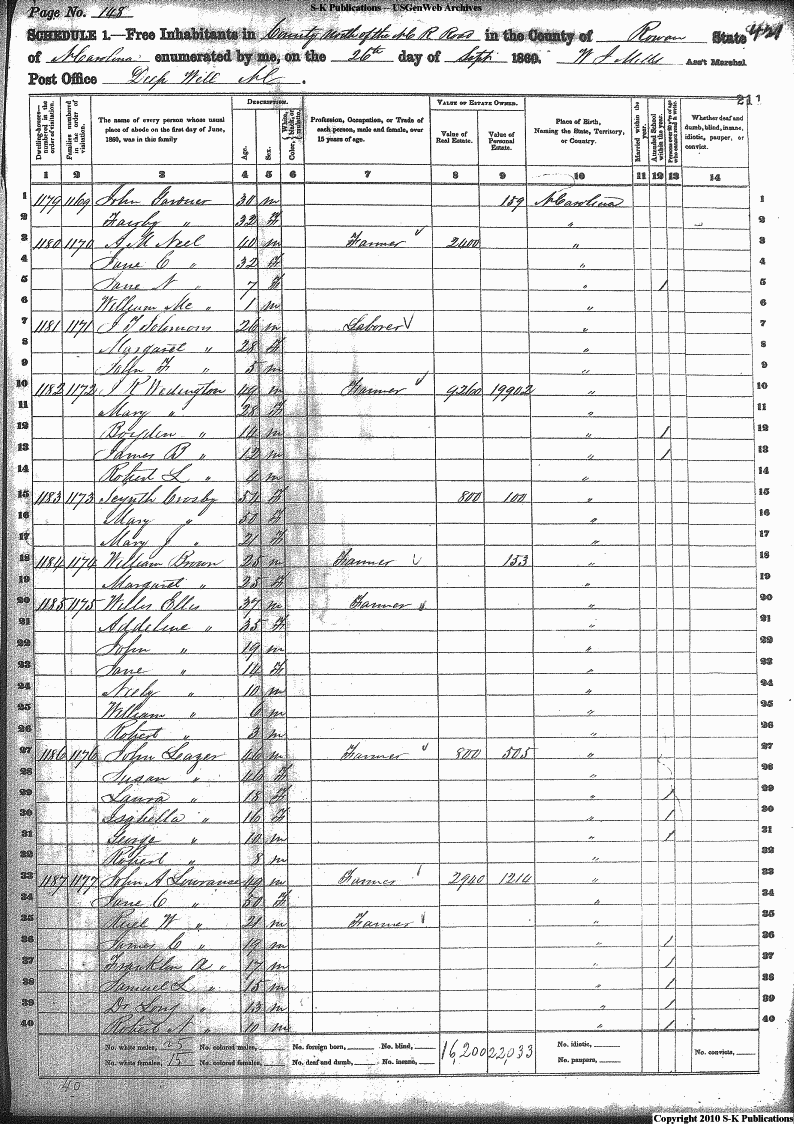 S-K Publications – USGenWeb Archives
Page No. 148
SCHEDULE 1.—Free Inhabitants in County North of the N C R Road in the County of Rowan State
of N Carolina enumerated by me, on the 26th day of Sept 1860. W J Mills Ass't Marshal.
Post Office Deep Well N C.
DESCRIPTION. VALUE OF ESTATE OWNED.
Dwelling-houses—numbered in the order of visitation. Families numbered in the order of visitation. The name of every person whose usual place of abode on the first day of June, 1860, was in this family Age. Sex. Color, Profession, Occupation, or Trade of each person, male and female, over 15 years of age. Value of Real Estate. Value of Personal Estate. Place of Birth, Naming the State, Territory, or Country. Married within the year. Attended School within the year. Persons over 20 y'rs of age who cannot read & write. Whether deaf and dumb, blind, insane, idiotic, pauper, or convict.
1 2 3 4 5 6 7 8 9 10 11 12 13 14
1 1179 1169 John 30 m 159 N Carolina 1
2 " 32 F " 2
3 1180 1170 A M Neel 40 m Farmer 2400 " 3
4 Jane C " 32 F " 4
5 Jane N " 7 F " / 5
6 William Mc " 1 m " 6
7 1181 1171 26 m Laborer " 7
8 Margaret " 28 F " 8
9 John F " 5 m " 9
10 1182 1172 49 m Farmer 9260 19902 " 10
11 Mary " 28 F " 11
12 Boyden " 14 m " / 12
13 James B " 12 m " / 13
14 Robert L " 4 m " 14
15 1183 1173 Crosby 54 F 800 100 " 15
16 Mary " 50 F " 16
17 Mary J " 21 F " 17
18 1184 1174 William Brown 25 m Farmer 153 " 18
19 Margaret " 25 F " 19
20 1185 1175 Willis Ellis 37 m Farmer " 20
21 Addeline " 35 F " 21
22 John " 19 m " 22
23 Jane " 14 F " 23
24 Neely " 10 m " 24
25 William " 6 m " 25
26 Robert " 3 m " 26
27 1186 1176 John Leazer 46 m Farmer 800 505 " 27
28 Susan " 46 F " 28
29 Laura " 18 F " / 29
30 Isabella " 16 F " / 30
31 George " 10 m " / 31
32 Robert " 8 m " 32
33 1187 1177 John A Lowrance 49 m Farmer 2940 1214 " 33
34 Jane C " 50 F " 34
35 W " 21 m Farmer " 35
36 James C " 19 m " / 36
37 Franklin A " 17 m " / 37
38 Samuel L " 15 m " / 38
39 Dr Long " 13 m " / 39
40 Robert N " 10 m " / 40
No. white males, 25 No. colored males, No. foreign born, No. blind, 16,200 22,033 No. idiotic, No. convicts,
No. white females, 15 No. colored females, No. deaf and dumb, No. insane, No. paupers,
40
Copyright 2010 S-K Publications